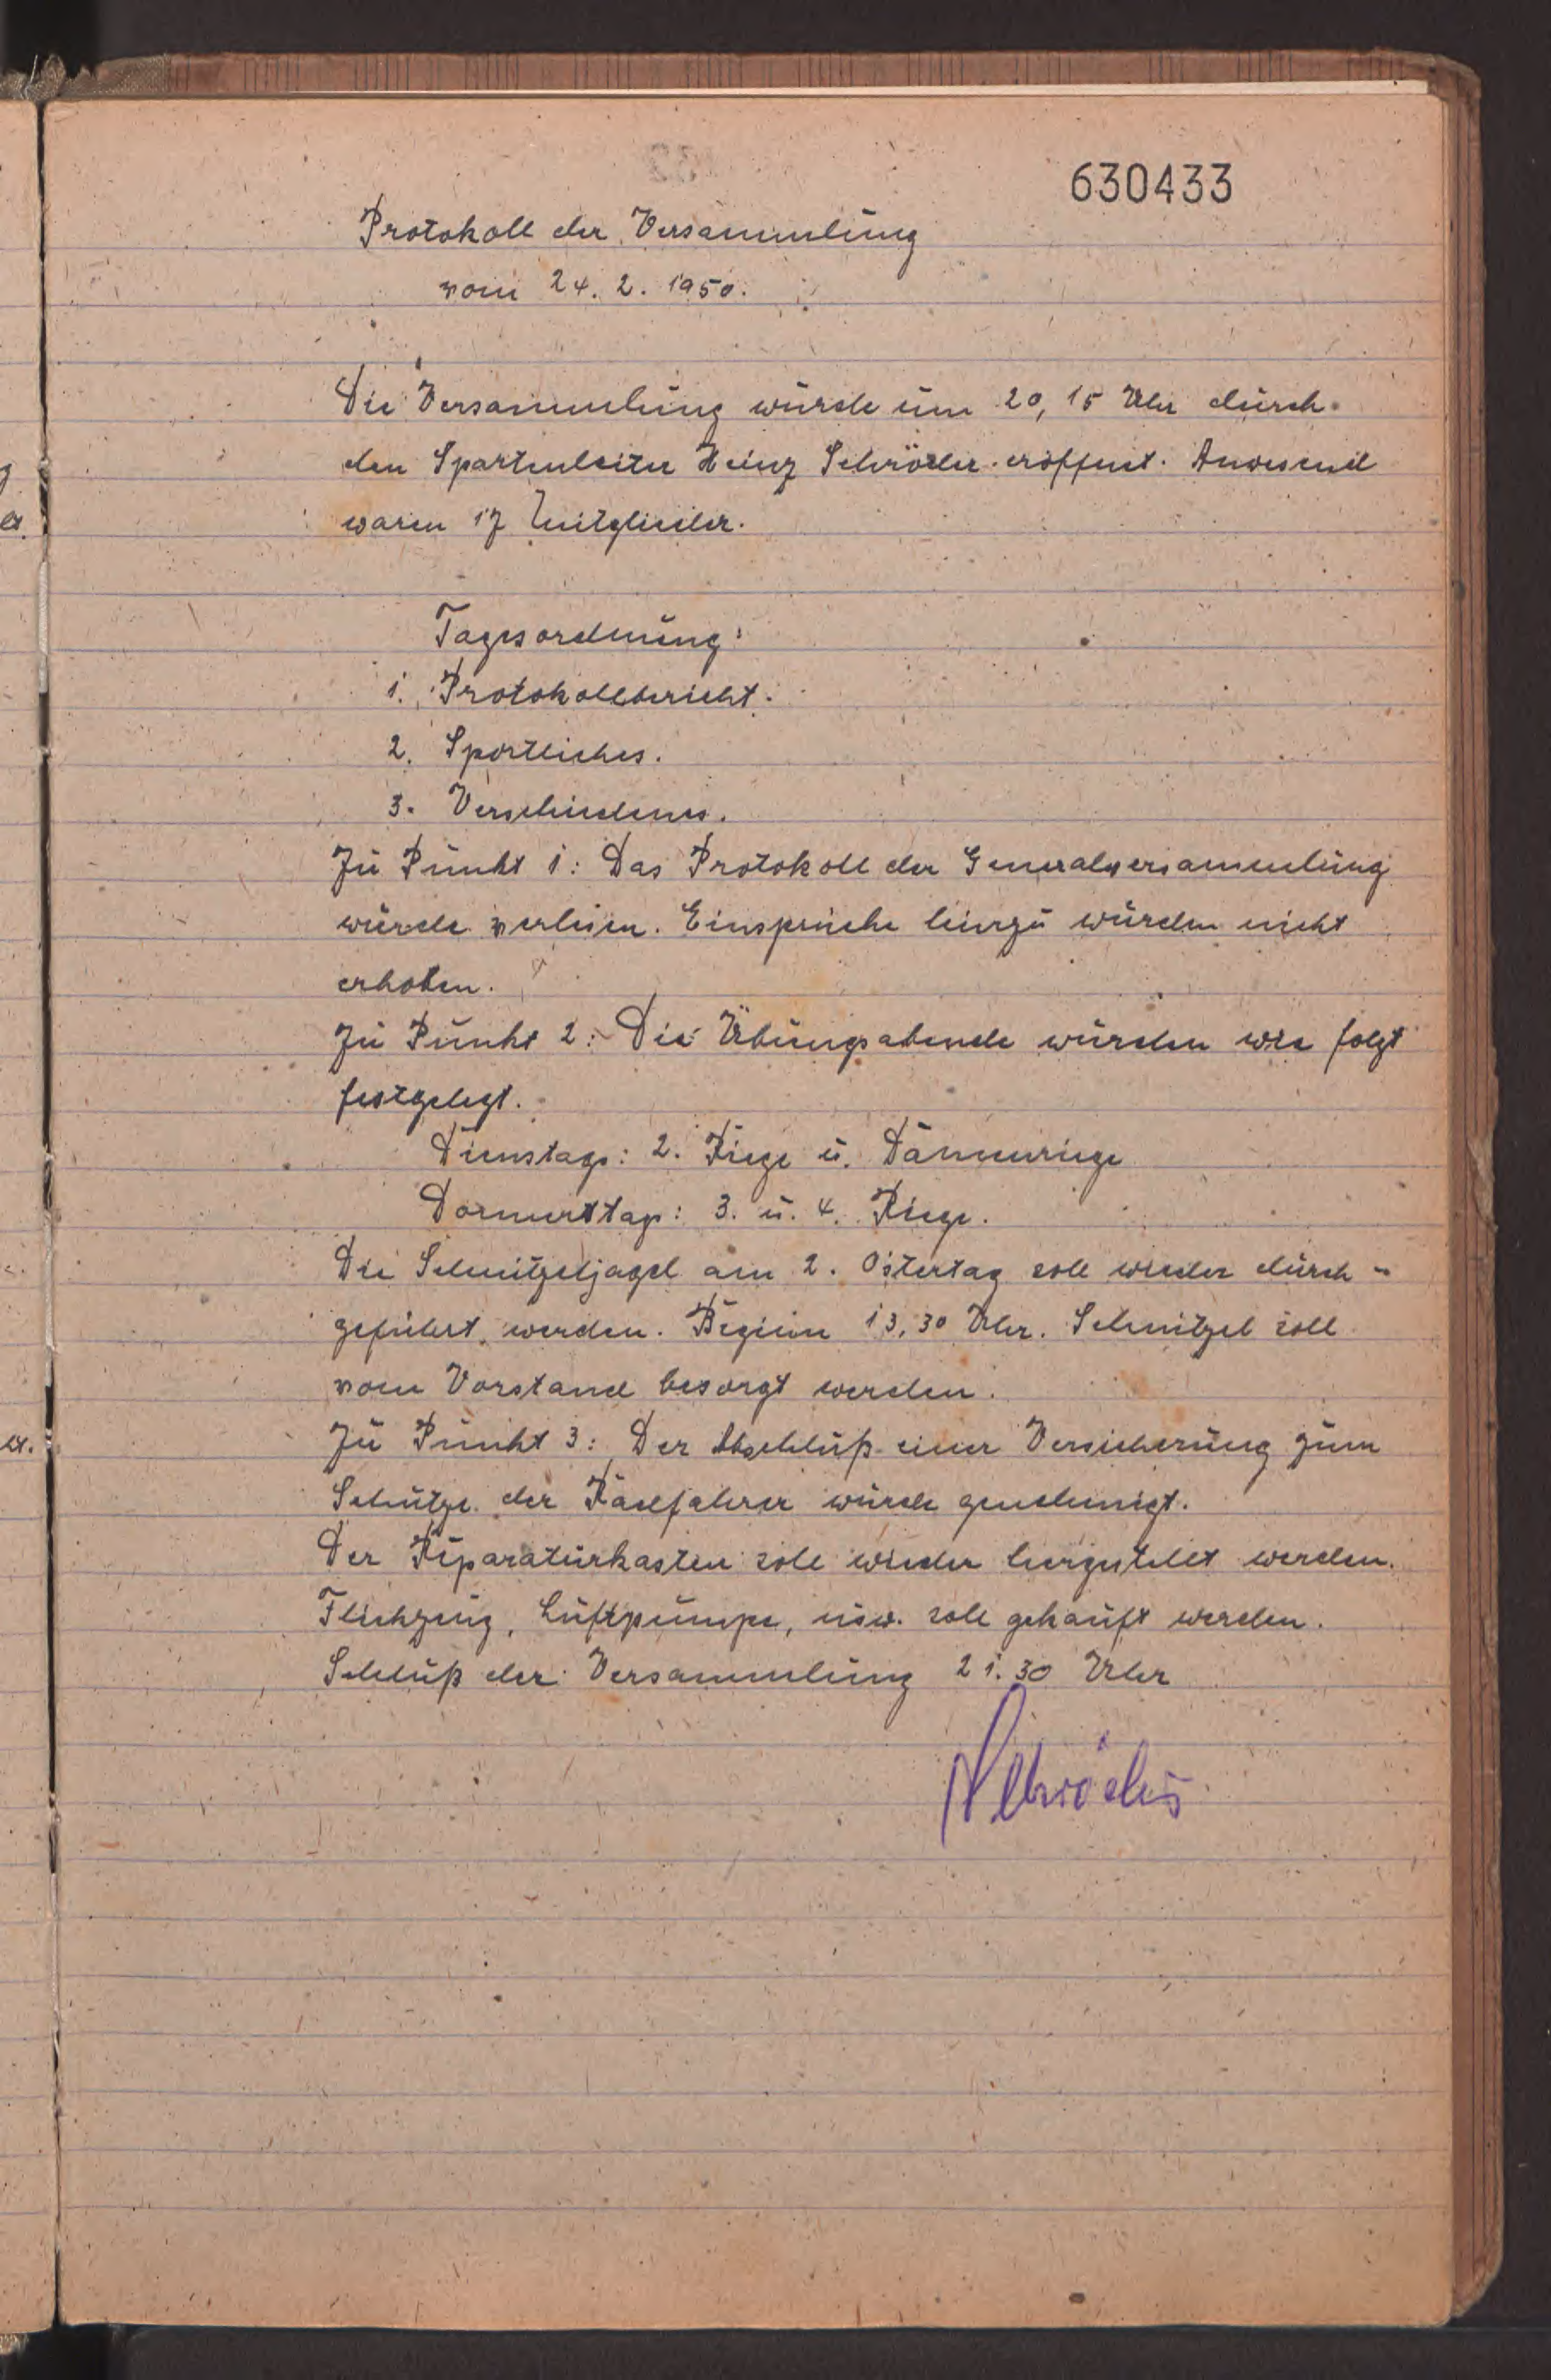 630433
Protokoll der Versammlung
vom 24. 2. 1950.
Die Versammlung wurde um 20,15 Uhr durch
den Spartenleiter Heinz Schröder eröffnet. Anwesend
waren 17 Mitglieder.
Tagesordnung:
1. Protokollbericht.
2. Sportliches.
3. Verschiedenes.
Zu Punkt 1: Das Protokoll der Generalversammlung
wurde verlesen. Einsprüche hierzu wurden nicht
erhoben.
Zu Punkt 2: Die Übungsabende wurden wie folgt
festgelegt.
Dienstags: 2. Riege u. Damenriege
Donnerstags: 3. u. 4. Riege.
Die Schnitzeljagd am 2. Ostertag soll wieder durch-
geführt werden. Beginn 13,30 Uhr. Schnitzel soll
vom Vorstand besorgt werden.
Zu Punkt 3: Der Abschluß einer Versicherung zum
Schutze der Radfahrer wurde genehmigt.
Der Reparaturkasten soll wieder hergestellt werden.
Flickzeug, Luftpumpe, usw. soll gekauft werden.
Schluß der Versammlung 21.30 Uhr
Schröder